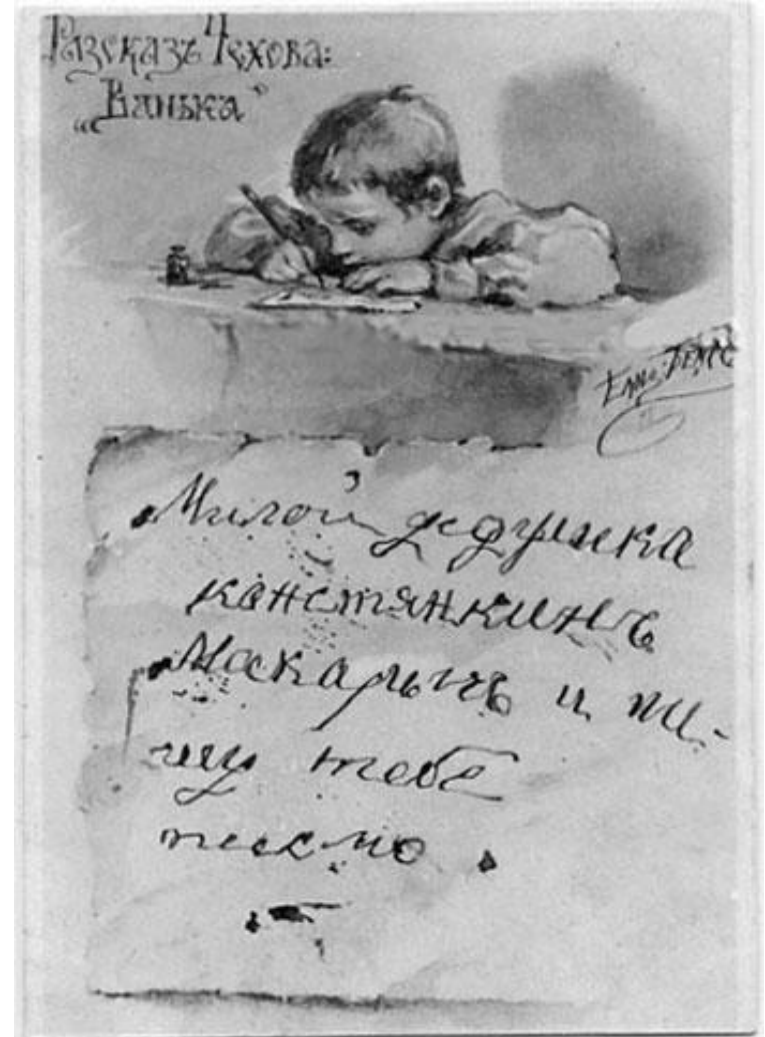 Разсказъ Чехова:
„Ванька“
Елис. Бемъ
Милой дедушка
констянкинъ
Макарычъ и пи-
шу тебѣ
письмо.